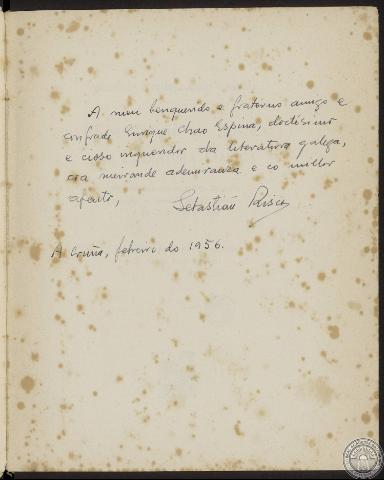 A meu benquerido e fraterno amigo e
confrade Enrique Chao Espina, doctísimo
e cioso inqueridor da literatura galega,
coa meirande ademiranza e co millor
afecto,
Sebastián Risco
A Cruña, febreiro do 1956.